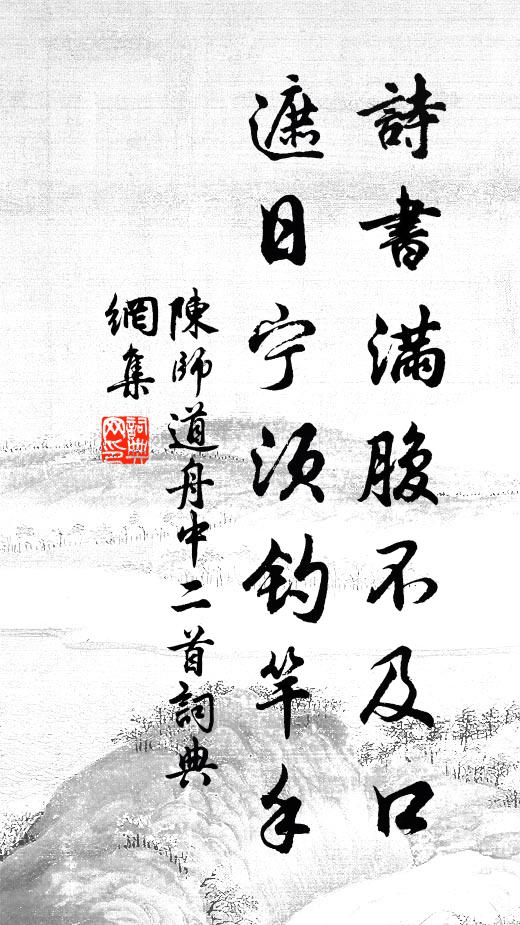 詩書滿腹不及口
遮日宁須釣竿手
陳師道舟中二首詞典
網集
詞典
网印